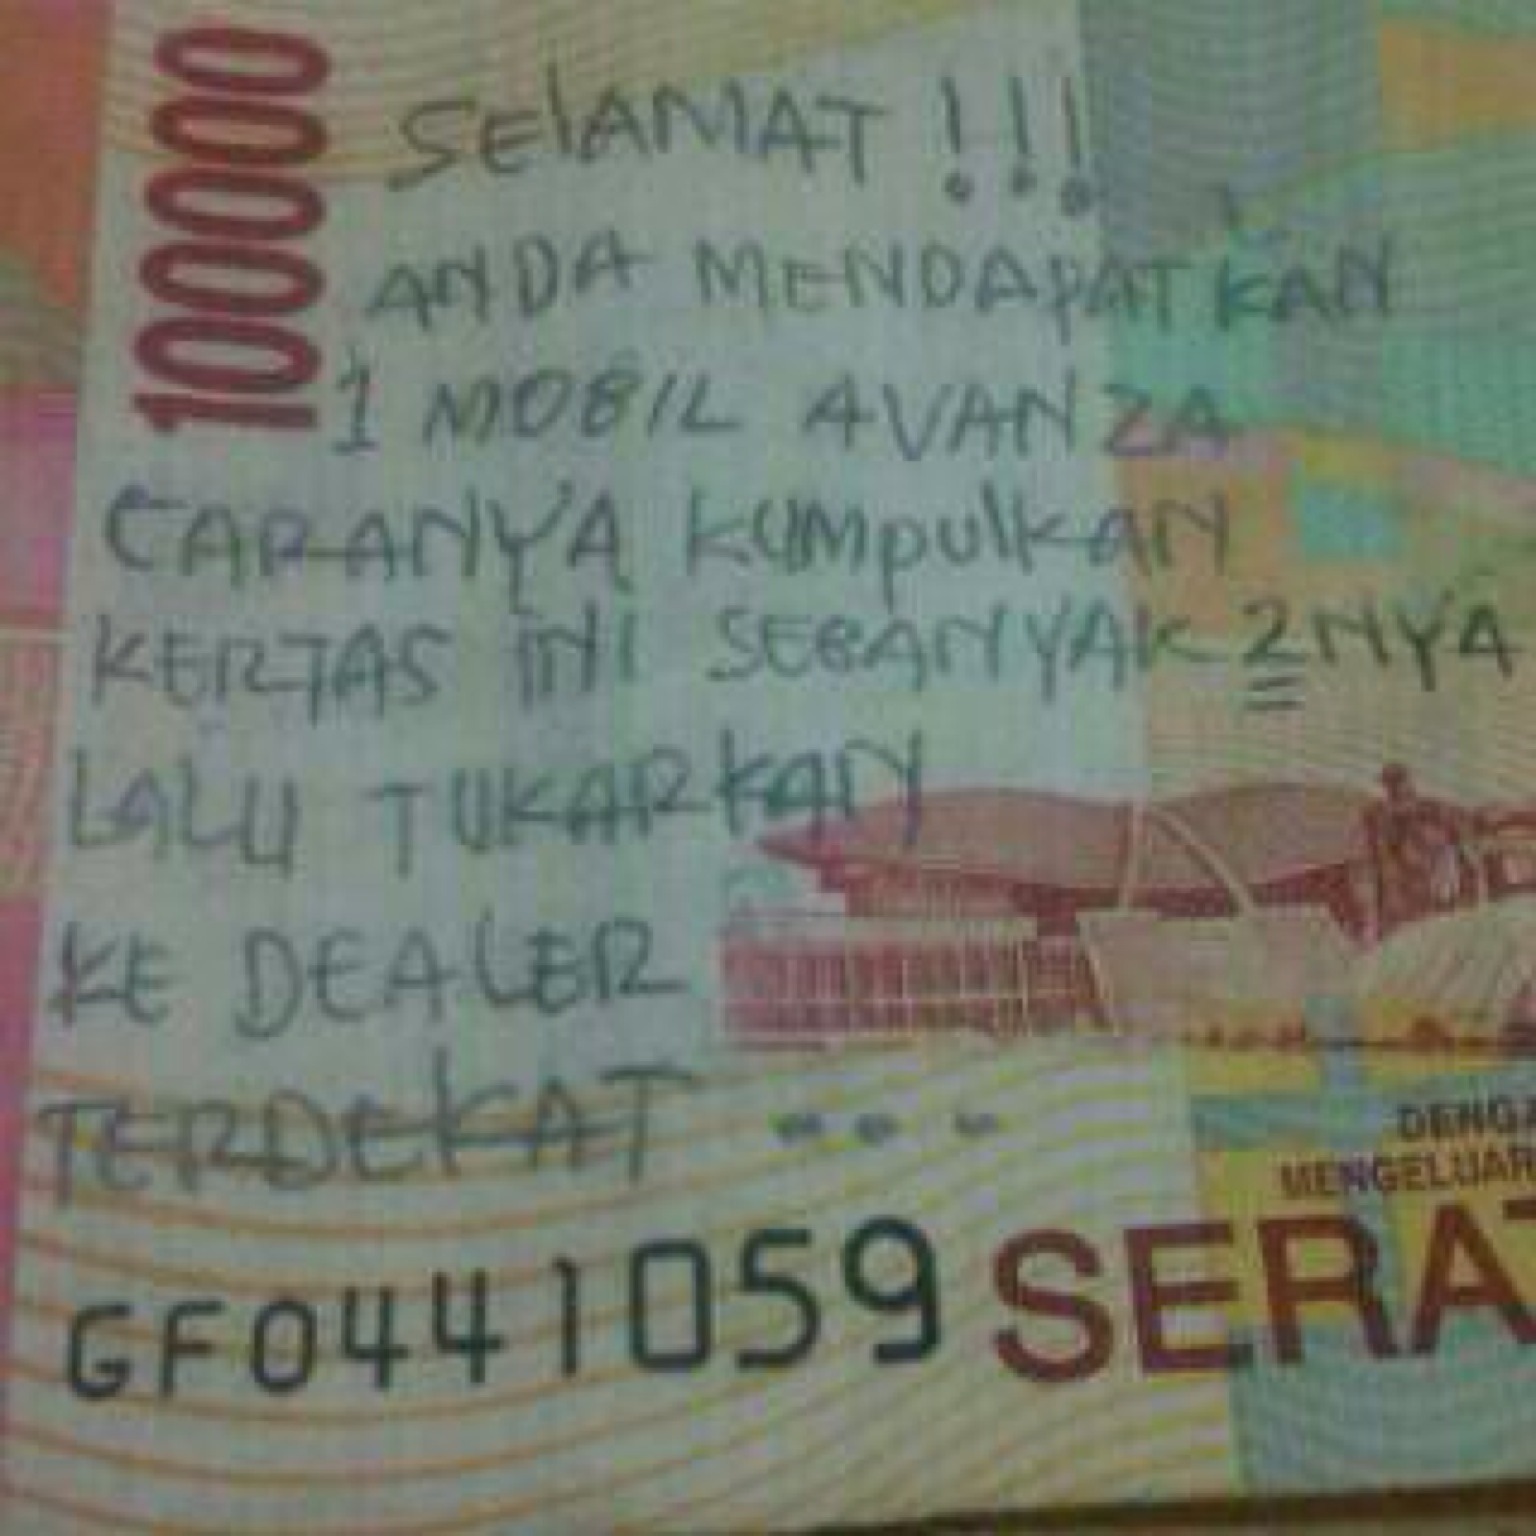 100000
SElAMAT !!!
ANDA MENDAPATKAN
1 MOBIL AVANZA
CARANYA KUMpulkaN
KERTAS INI SEBANYAK 2NYA
LALU TUKARKAN
KE DEALER
TERDEKAT ...
DENGA
MENGELUAR
GF0441059 SERAT